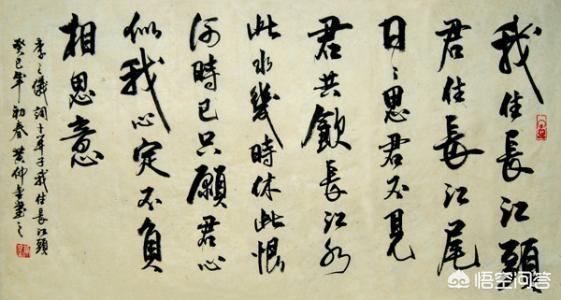 我住長江頭
君住長江尾
日〻思君不見
君共飲長江水
此水幾時休此恨
何時已只願君心
似我心定不負
相思意
李之儀詞卜算子我住長江頭
癸巳年初春黄仲書之
悟空问答